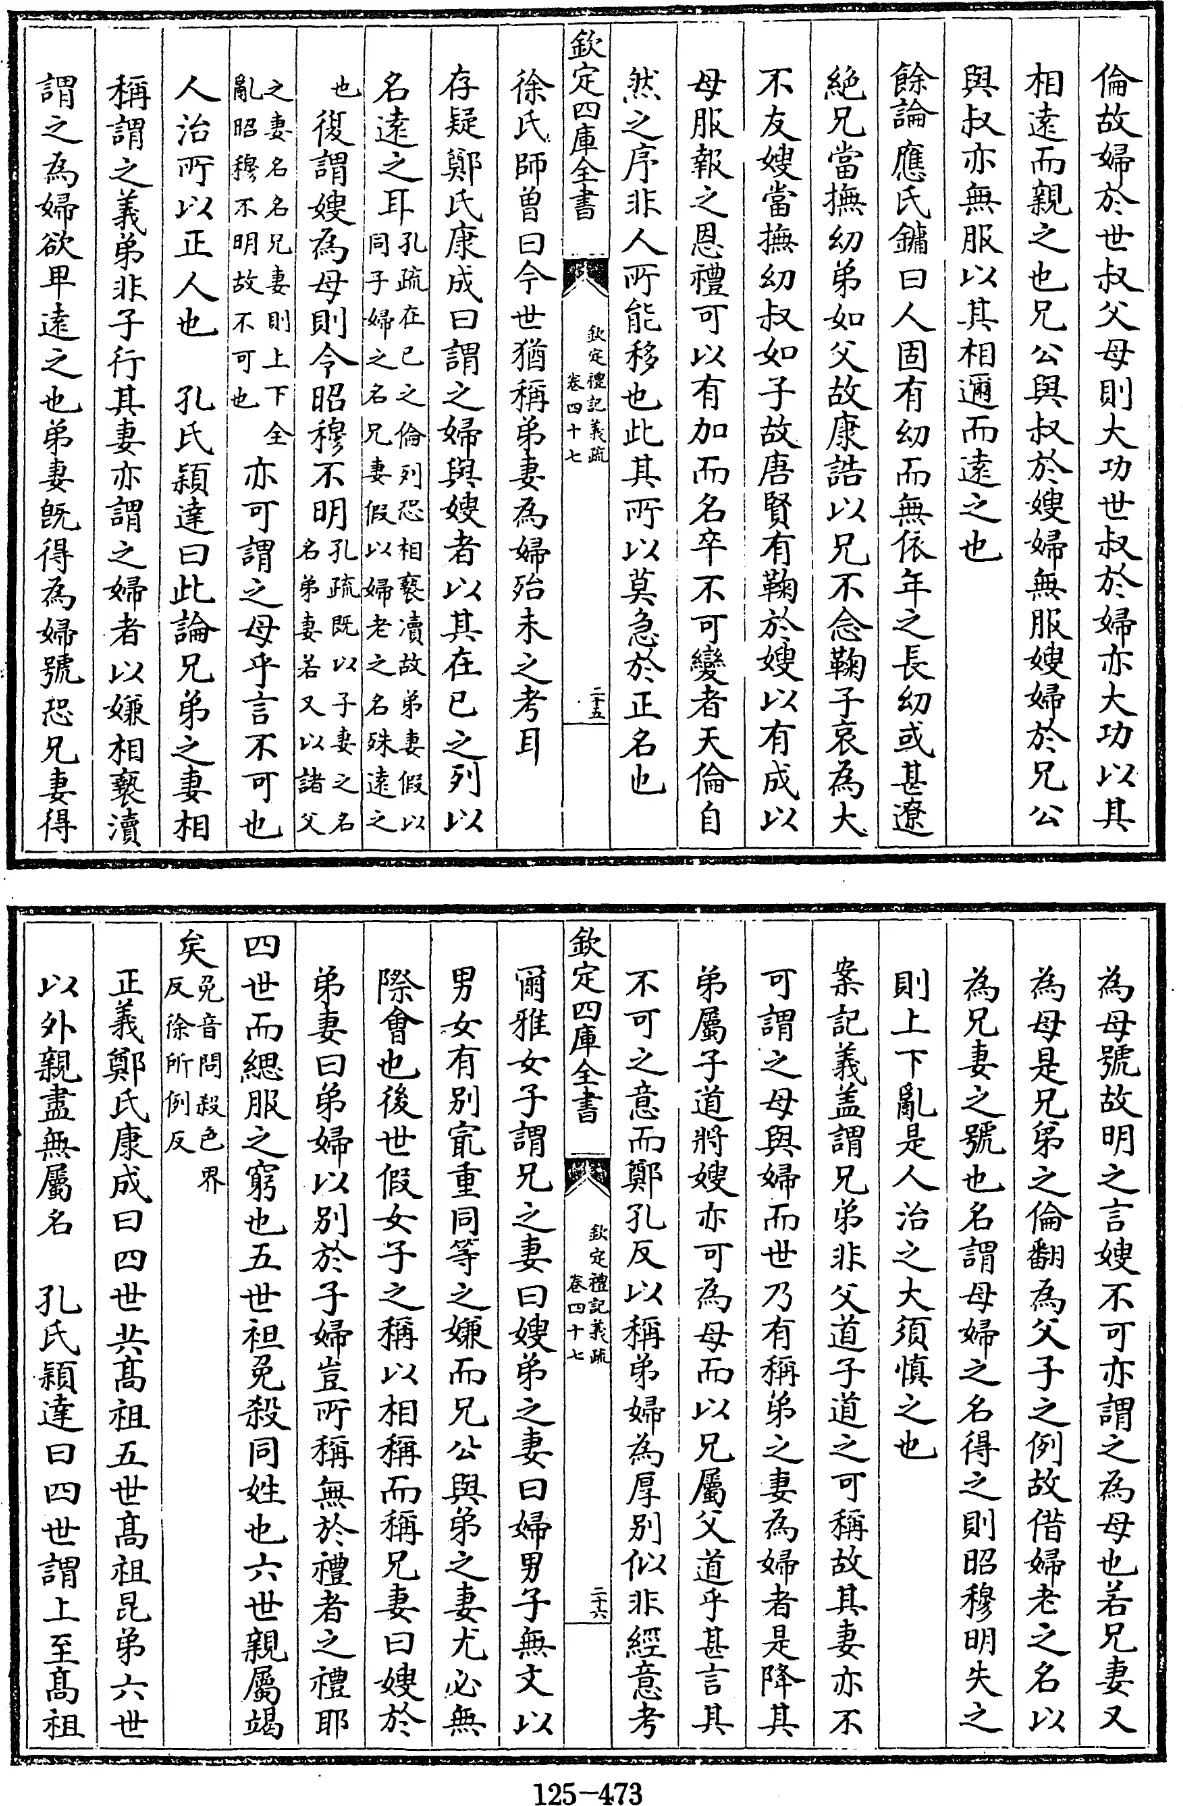 倫故婦於世叔父母則大功世叔於婦亦大功以其
相遠而親之也兄公與叔於嫂婦無服嫂婦於兄公
與叔亦無服以其相邇而遠之也
餘論應氏鏞曰人固有幼而無依年之長幼或甚遼
絶兄當撫幼弟如父故康誥以兄不念鞠子哀為大
不友嫂當撫幼叔如子故唐賢有鞠於嫂以有成以
母服報之恩禮可以有加而名卒不可變者天倫自
然之序非人所能移也此其所以莫急於正名也
欽定四庫全書
欽定禮記義疏
卷四十七
二十五
徐氏師曾曰今世猶稱弟妻為婦殆未之考耳
存疑鄭氏康成曰謂之婦與嫂者以其在已之列以
名遠之耳孔疏在已之倫列恐相褻瀆故弟妻假以同子婦之名兄妻假以婦老之名殊遠之
也復謂嫂為母則令昭穆不明孔疏既以子妻之名名弟妻若又以諸父
之妻名名兄妻則上下全亂昭穆不明故不可也亦可謂之母乎言不可也
人治所以正人也　孔氏穎達曰此論兄弟之妻相
稱謂之義弟非子行其妻亦謂之婦者以嫌相褻瀆
謂之為婦欲卑遠之也弟妻旣得為婦號恐兄妻得
為母號故明之言嫂不可亦謂之為母也若兄妻又
為母是兄弟之倫翻為父子之例故借婦老之名以
為兄妻之號也名謂母婦之名得之則昭穆明失之
則上下亂是人治之大須慎之也
案記義盖謂兄弟非父道子道之可稱故其妻亦不
可謂之母與婦而世乃有稱弟之妻為婦者是降其
弟屬子道將嫂亦可為母而以兄屬父道乎甚言其
不可之意而鄭孔反以稱弟婦為厚别似非經意考
欽定四庫全書
欽定禮記義疏
卷四十七
二十六
爾雅女子謂兄之妻曰嫂弟之妻曰婦男子無文以
男女有别㝡重同等之嫌而兄公與弟之妻尤必無
際會也後世假女子之稱以相稱而稱兄妻曰嫂於
弟妻曰弟婦以别於子婦豈所稱無於禮者之禮耶
四世而緦服之窮也五世袒免殺同姓也六世親屬竭
矣免音問殺色界反徐所例反
正義鄭氏康成曰四世共髙祖五世髙祖昆弟六世
以外親盡無屬名　孔氏穎達曰四世謂上至髙祖
125-473